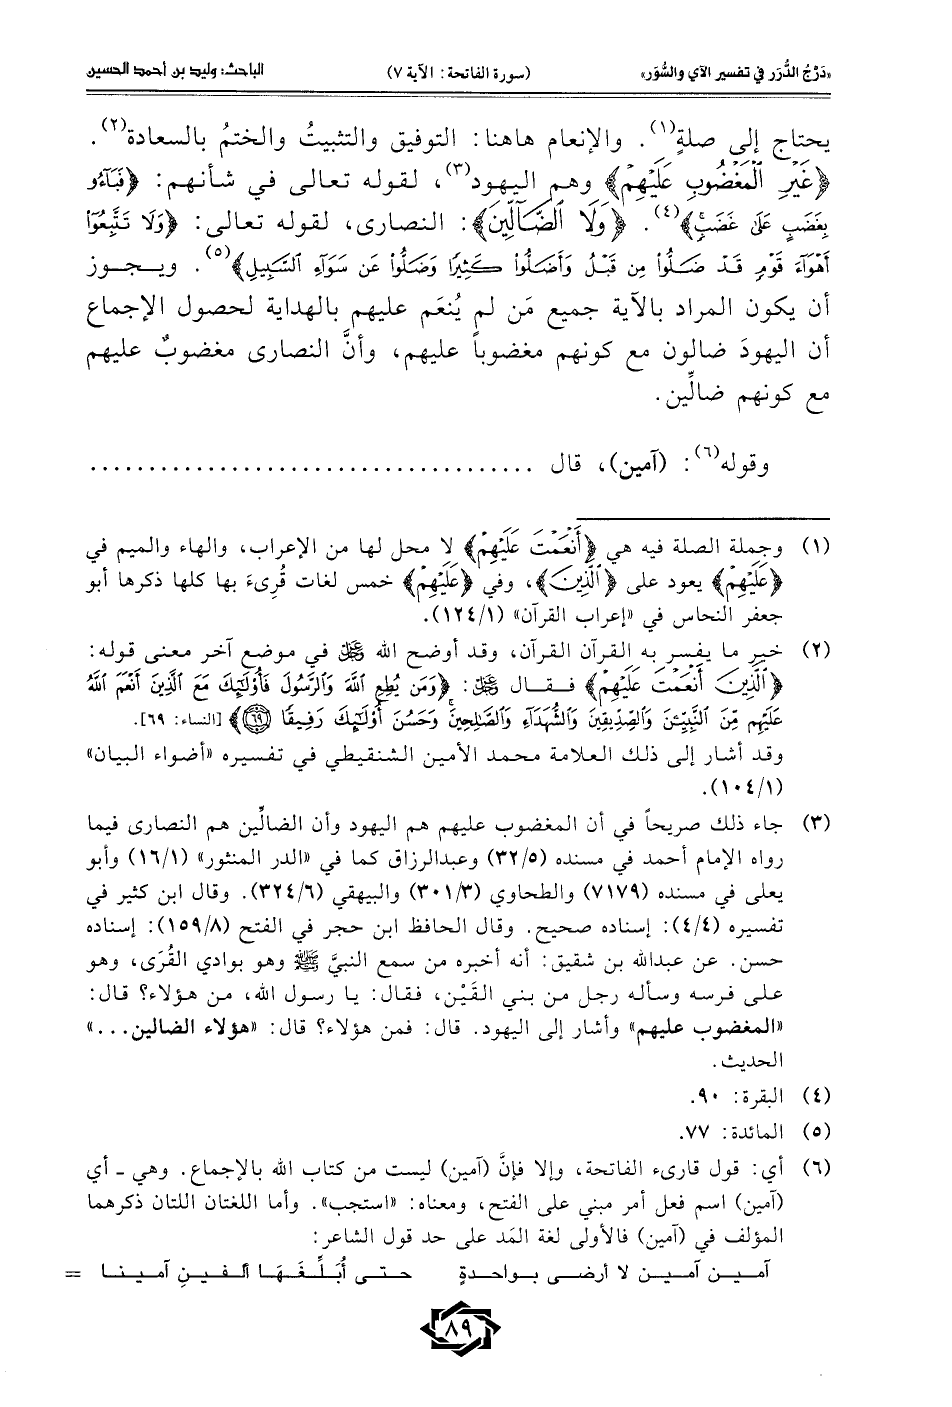 «دَرْجُ الدُّرَر في تفسير الآي والسُّوَر» (سورة الفاتحة: الآية ٧) الباحث: وليد بن أحمد الحسين
يحتاج إلى صلةٍ(١). والإنعام هاهنا: التوفيق والتثبيتُ والختمُ بالسعادة(٢).
﴿غَيْرِ الْمَغْضُوبِ عَلَيْهِمْ﴾ وهم اليهود(٣)، لقوله تعالى في شأنهم: ﴿فَبَآءُو
بِغَضَبٍ عَلَىٰ غَضَبٍ﴾(٤). ﴿وَلَا الضَّآلِّينَ﴾: النصارى، لقوله تعالى: ﴿وَلَا تَتَّبِعُوٓا۟
أَهْوَآءَ قَوْمٍ قَدْ ضَلُّوا۟ مِن قَبْلُ وَأَضَلُّوا۟ كَثِيرًا وَضَلُّوا۟ عَن سَوَآءِ السَّبِيلِ﴾(٥). ويجوز
أن يكون المراد بالآية جميع مَن لم يُنعَم عليهم بالهداية لحصول الإجماع
أن اليهودَ ضالون مع كونهم مغضوباً عليهم، وأنَّ النصارى مغضوبٌ عليهم
مع كونهم ضالِّين.
وقوله(٦): (آمين)، قال ......................................
(١) وجملة الصلة فيه هي ﴿أَنْعَمْتَ عَلَيْهِمْ﴾ لا محل لها من الإعراب، والهاء والميم في
﴿عَلَيْهِمْ﴾ يعود على ﴿الَّذِينَ﴾، وفي ﴿عَلَيْهِمْ﴾ خمس لغات قُرِىءَ بها كلها ذكرها أبو
جعفر النحاس في «إعراب القرآن» (١/١٢٤).
(٢) خير ما يفسر به القرآن القرآن، وقد أوضح الله ﷻ في موضع آخر معنى قوله:
﴿الَّذِينَ أَنْعَمْتَ عَلَيْهِمْ﴾ فقال ﷻ: ﴿وَمَن يُطِعِ اللَّهَ وَالرَّسُولَ فَأُو۟لَٰٓئِكَ مَعَ الَّذِينَ أَنْعَمَ اللَّهُ
عَلَيْهِم مِّنَ النَّبِيِّـۧنَ وَالصِّدِّيقِينَ وَالشُّهَدَآءِ وَالصَّٰلِحِينَ وَحَسُنَ أُو۟لَٰٓئِكَ رَفِيقًا ٦٩﴾ [النساء: ٦٩].
وقد أشار إلى ذلك العلامة محمد الأمين الشنقيطي في تفسيره «أضواء البيان»
(١/١٠٤).
(٣) جاء ذلك صريحاً في أن المغضوب عليهم هم اليهود وأن الضالِّين هم النصارى فيما
رواه الإمام أحمد في مسنده (٥/٣٢) وعبدالرزاق كما في «الدر المنثور» (١/١٦) وأبو
يعلى في مسنده (٧١٧٩) والطحاوي (٣/٣٠١) والبيهقي (٦/٣٢٤). وقال ابن كثير في
تفسيره (٤/٤): إسناده صحيح. وقال الحافظ ابن حجر في الفتح (٨/١٥٩): إسناده
حسن. عن عبدالله بن شقيق: أنه أخبره من سمع النبيَّ ﷺ وهو بوادي القُرَى، وهو
على فرسه وسأله رجل من بني القَيْن، فقال: يا رسول الله، من هؤلاء؟ قال:
«المغضوب عليهم» وأشار إلى اليهود. قال: فمن هؤلاء؟ قال: «هؤلاء الضالين...»
الحديث.
(٤) البقرة: ٩٠.
(٥) المائدة: ٧٧.
(٦) أي: قول قارىء الفاتحة، وإلا فإنَّ (آمين) ليست من كتاب الله بالإجماع. وهي - أي
(آمين) اسم فعل أمر مبني على الفتح، ومعناه: «استجب». وأما اللغتان اللتان ذكرهما
المؤلف في (آمين) فالأولى لغة المَد على حد قول الشاعر:
آمين آمين لا أرضى بواحدةٍ حتى أُبَلِّغَهَا ألفينِ آمينا =
٨٩